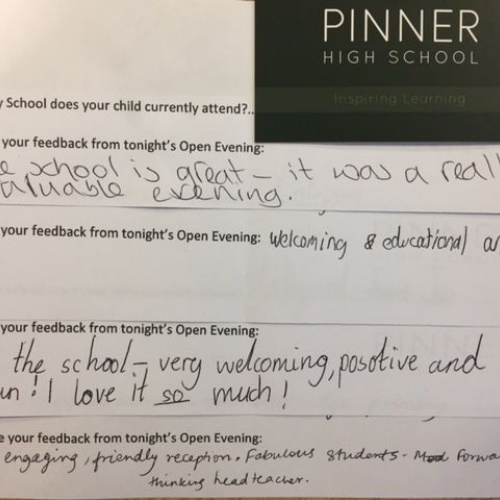 PINNER
HIGH SCHOOL
Inspiring Learning
School does your child currently attend?..
your feedback from tonight's Open Evening:
school is great – it was a reall
evening.
your feedback from tonight's Open Evening: Welcoming & educational
your feedback from tonight's Open Evening:
the school – very welcoming, posotive and
! I love it so much!
your feedback from tonight's Open Evening:
engaging, friendly reception. Fabulous students - Forwa
thinking headteacher.